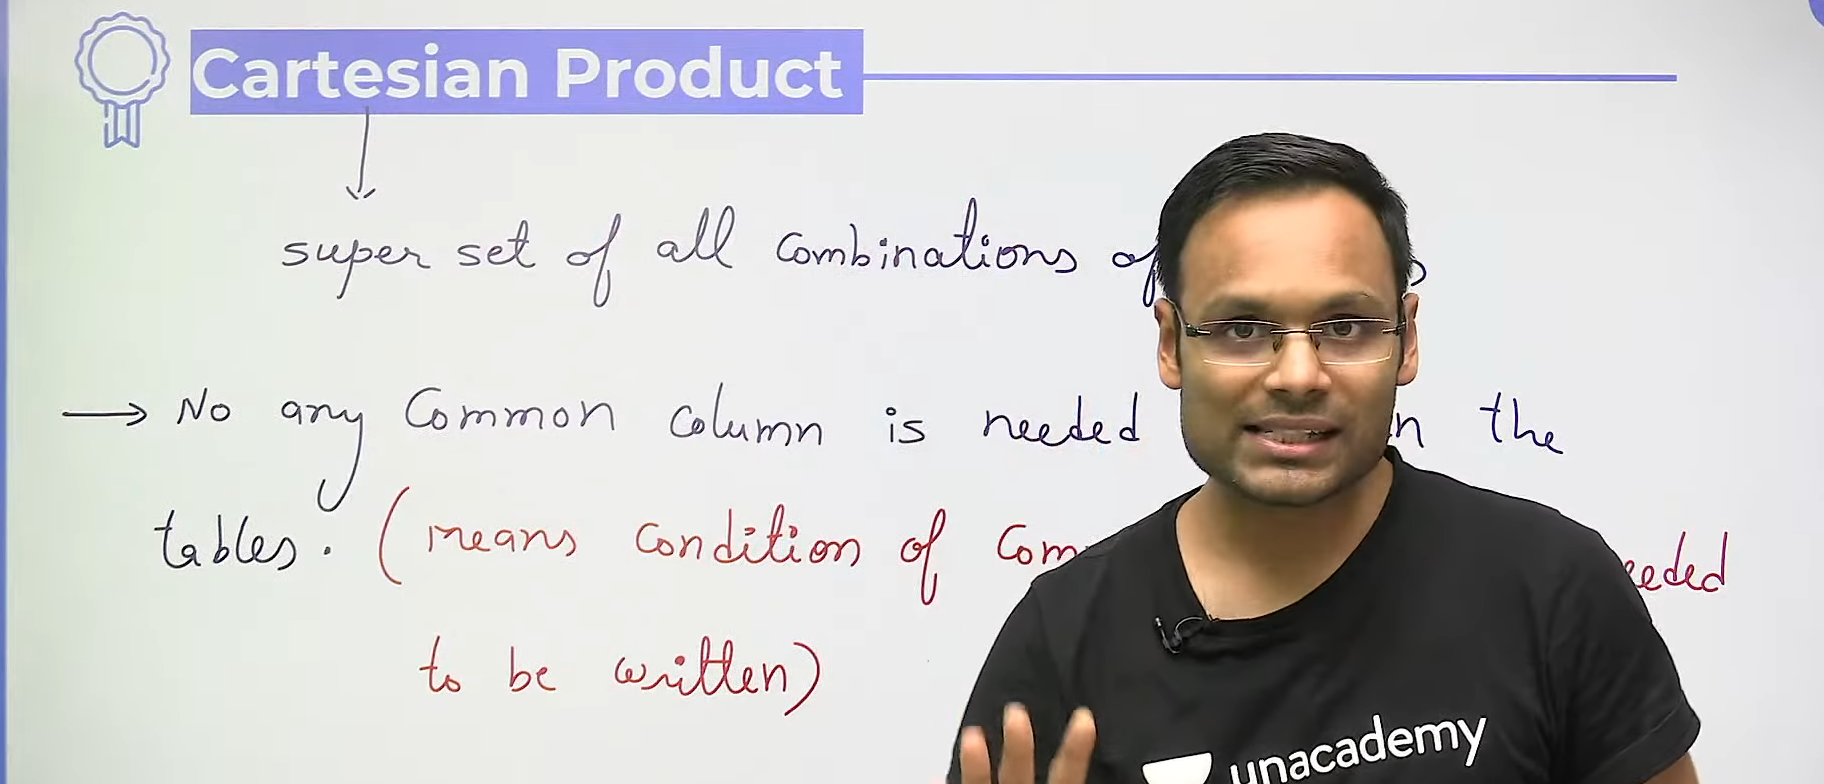 Cartesian Product
super set of all combinations of
→ No any Common column is needed the
tables. (means condition of
to be written)
unacademy